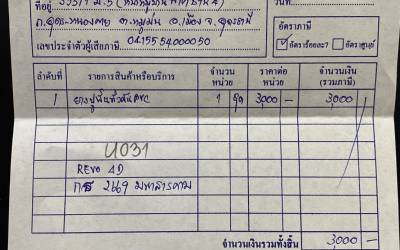 ที่อยู่ 555/1 ม.5
วันที่
ถ.อุดร-หนองคาย ต.หมูม่น อ.เมือง จ.อุดรธานี
เลขประจำตัวผู้เสียภาษี 0415554000050
อัตราภาษี
อัตราร้อยละ 7 อัตราศูนย์
ลำดับที่ รายการสินค้าหรือบริการ จำนวนหน่วย ราคาต่อหน่วย จำนวนเงิน (รวมภาษี)
1 ยางปูพื้นทั้งคัน PVC 1 ชุด 3,000 – 3,000
4031
REVO 4D
กธ 2419 มหาสารคาม
จำนวนเงินรวมทั้งสิ้น 3,000 –